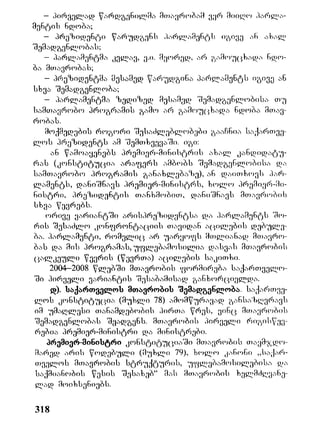 – პირველად წარდგენილმა მთავრობამ ვერ მიიღო პარლა-
მენტის ნდობა;
– პრეზიდენტი წარუდგენს პარლამენტს იგივე ან ახალ
შემადგენლობას;
– პარლამენტმა კვლავ, ე.ი. მეორედ, არ გამოუცხადა ნდო-
ბა მთავრობას;
– პრეზიდენტმა მესამედ წარუდგინა პარლამენტს იგივე ან
სხვა შემადგენლობა;
– პარლამენტმა ზედიზედ მესამედ შემადგენლობისა თუ
სამთავრობო პროგრამის გამო არ გამოუცხადა ნდობა მთავ-
რობას.
მოქმედების როგორი შესაძლებლობები გააჩნია საქართვე-
ლოს პრეზიდენტს ამ შემთხვევაში. იგი:
ან წამოაყენებს პრემიერ-მინისტრის ახალ კანდიდატუ-
რას (კონსტიტუცია არაფერს ამბობს შემადგენლობისა და
სამთავრობო პროგრამის განახლებაზე), ან დაითხოვს პარ-
ლამენტს, დანიშნავს პრემიერ-მინისტრს, ხოლო პრემიერ-მი-
ნისტრი, პრეზიდენტის თანხმობით, დანიშნავს მთავრობის
სხვა წევრებს.
ორივე ვარიანტში არისპრეზიდენტსა და პარლამენტს შო-
რის შესაძლო კონფრონტაციის თავიდან აცილების დებულე-
ბა. პარლამენტი, რომელიც არ უარყოფს მთლიანად მთავრო-
ბას და მის პროგრამას, უფლებამოსილია დასვას მთავრობის
ცალკეული წევრის (წევრთა) აცილების საკითხი.
2004–2008 წლებში მთავრობის ფორმირება საქართველო-
ში პირველი ვარიანტის შესაბამისად განხორციელდა.
დ). საქართველოს მთავრობის შემადგენლობა. საქართვე-
ლოს კონსტიტუცია (მუხლი 78) ამომწურავად განსაზღვრავს
იმ უმაღლესი თანამდებობის პირთა წრეს, ვინც მთავრობის
შემადგენლობას შეადგენს. მთავრობის პირველი რიგისწევ-
რებია პრემიერ-მინისტრი და მინისტრები.
პრემიერ-მინისტრი კონსტიტუციაში მთავრობის თავმჯდო-
მარედ არის წოდებული (მუხლი 79), ხოლო კანონი „საქარ-
თველოს მთავრობის სტრუქტურის, უფლებამოსილებისა და
საქმიანობის წესის შესახებ“ მას მთავრობის ხელმძღვანე-
ლად მოიხსენიებს.
318